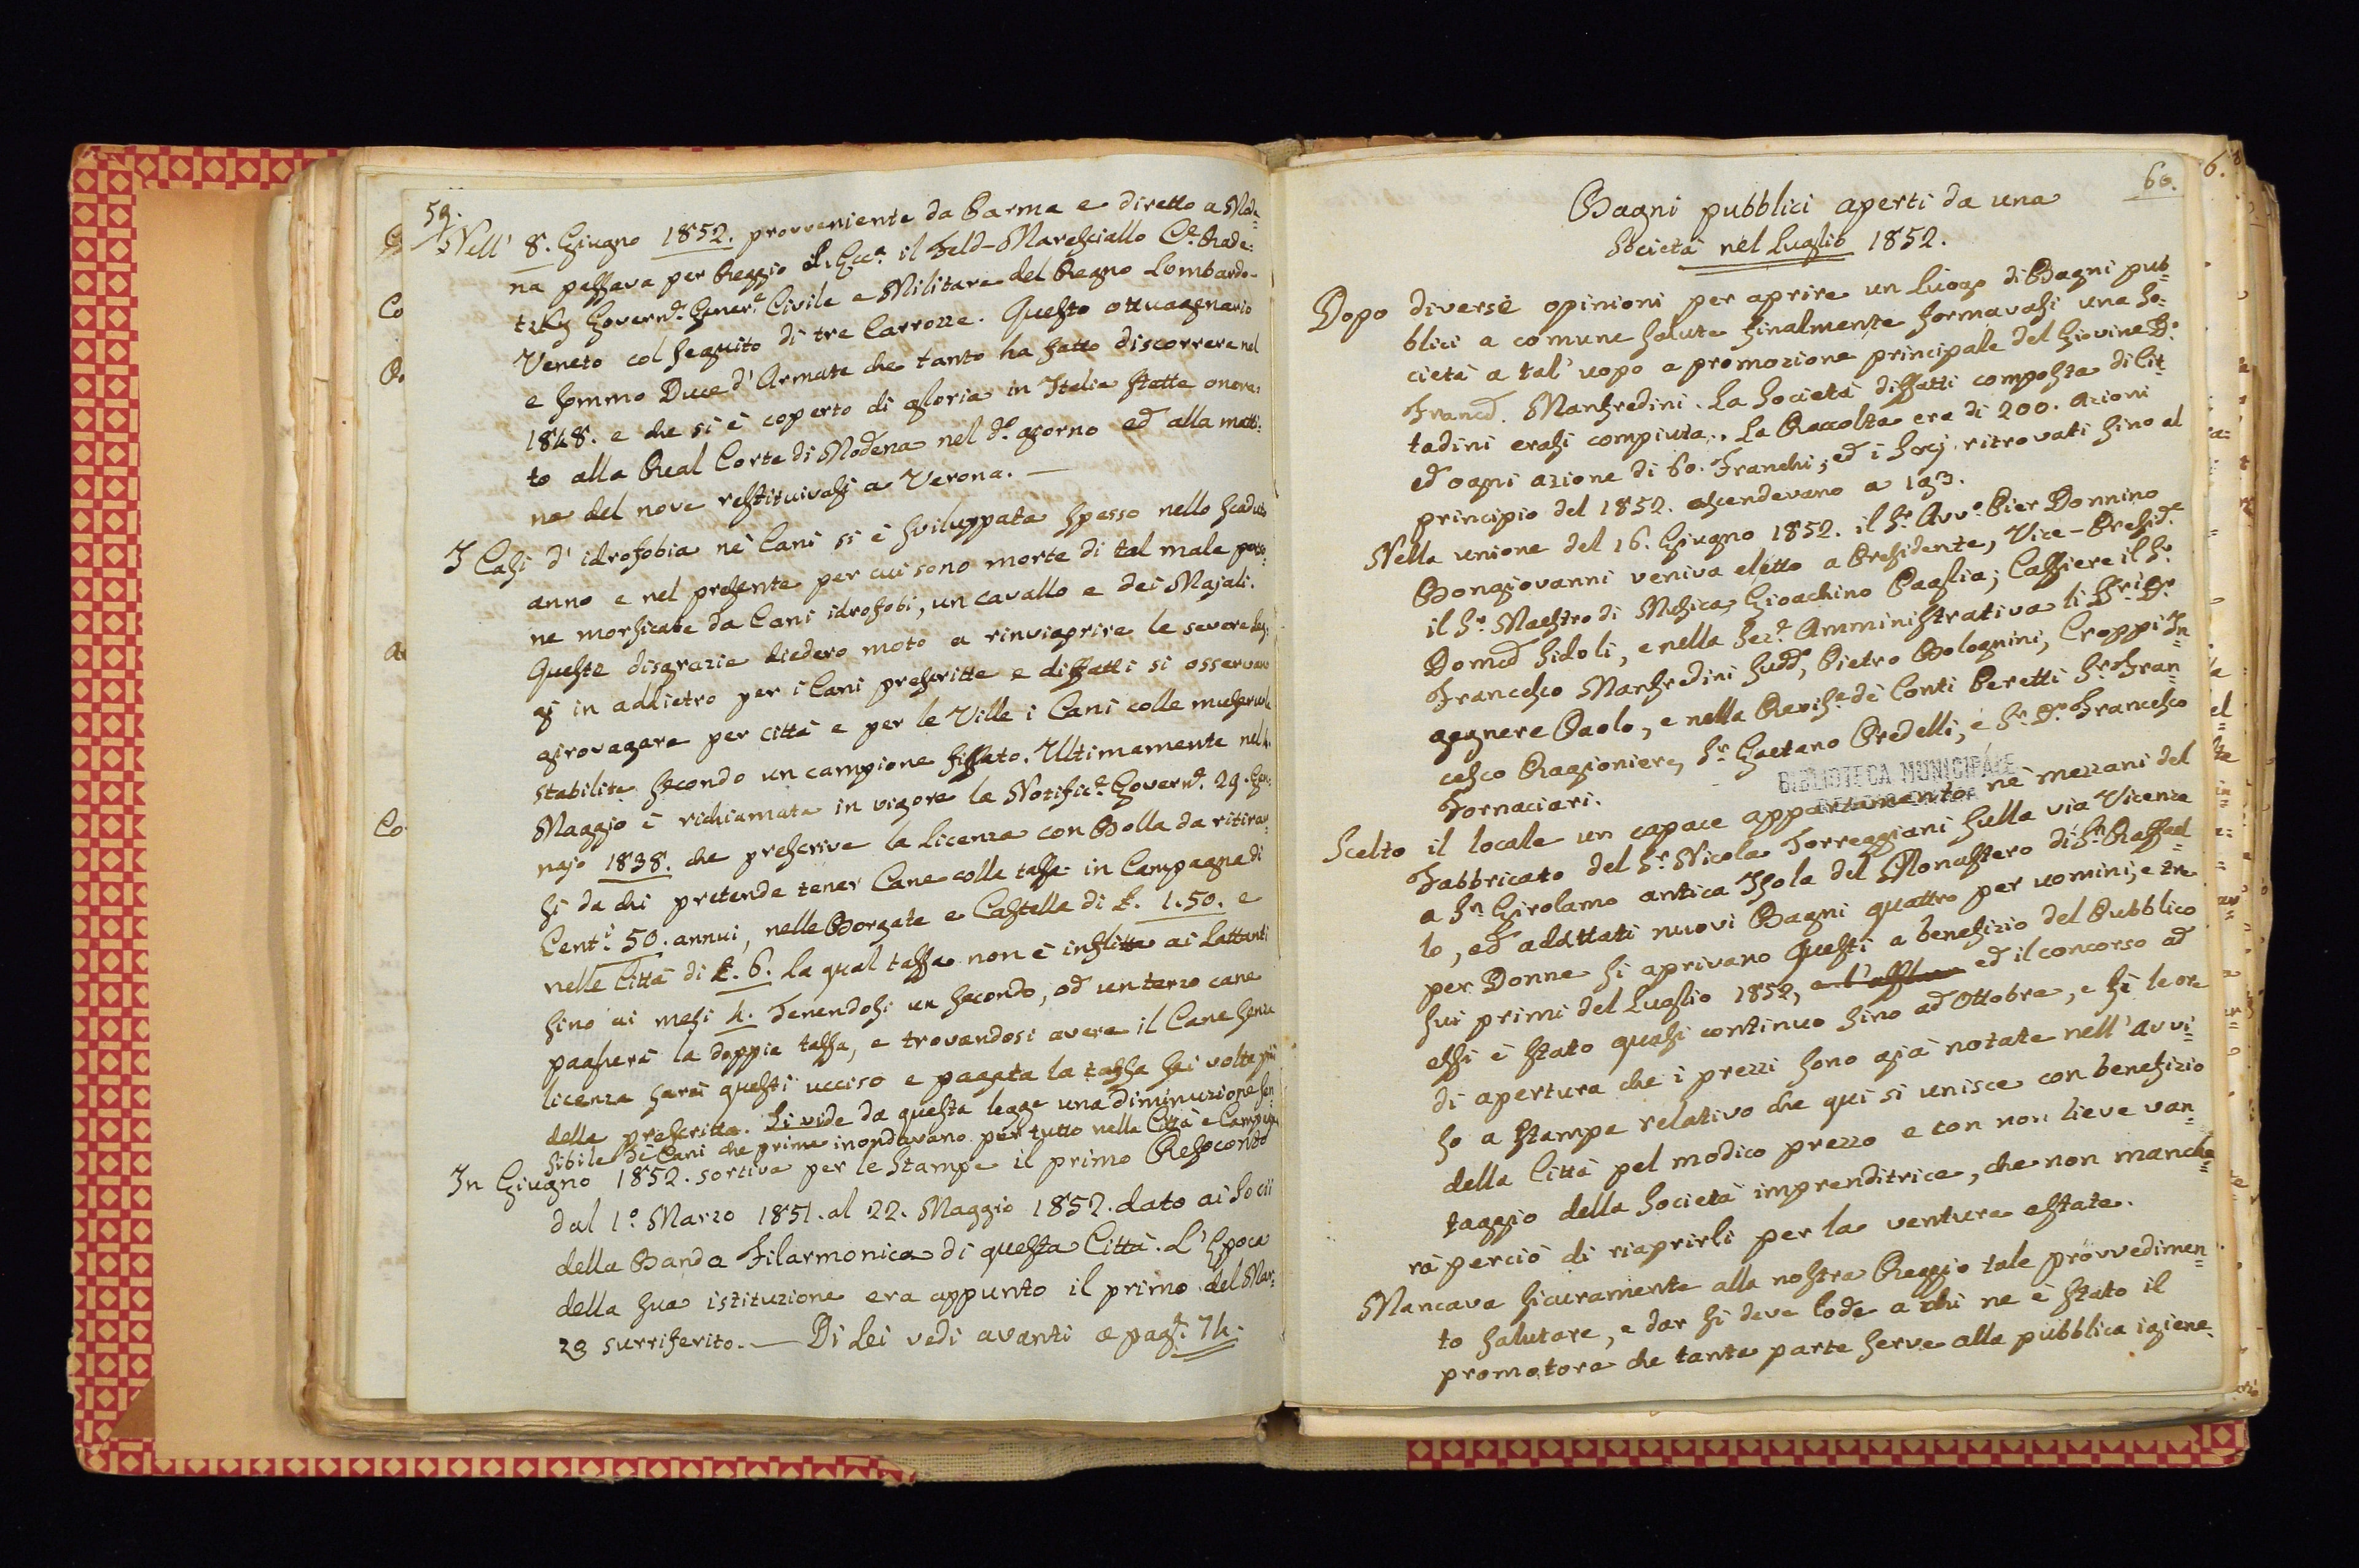 59.
Nell' 8. Giugno 1852. provveniente da Parma e diretto a Mode=
na passava per Reggio S. Ecc.a il Feld-Maresciallo C.e Rade=
tzky Govern.e Gener.e Civile e Militare del Regno Lombardo-
Veneto col seguito di tre Carrozze. Questo ottuagenario
e sommo Duce d'Armate che tanto ha fatto discorrere nel
1848. e che si è coperto di gloria in Italia stette onora=
to alla Real Corte di Modena nel d.o giorno ed alla matti=
na del nove restituivasi a Verona. —
I Casi d'idrofobia nè Cani si è sviluppata spesso nello scaduto
anno e nel presente per cui sono morte di tal male perso=
ne morsicate da Cani idrofobi, un cavallo e dei Majali.
Queste disgrazie diedero moto a rinviaprire le severe leg=
gi in addietro per i Cani prescritte e diffatti si osservano
girovagare per città e per le Ville i Cani colle museruole
stabilite secondo un campione fissato. Ultimamente nel
Maggio è richiamata in vigore la Notific.e Govern.e 29. Gen=
najo 1838. che prescrive la licenza con Bolla da ritirar=
si da chi pretende tener Cane colla tassa in Campagna di
Cent.i 50. annui, nelle Borgate e Castella di £. 1.50. e
nelle Città di £. 6. la qual tassa non è inflitta ai Lattanti
sino ai mesi 4. Tenendosi un secondo, od un terzo cane
pagherà la doppia tassa, e trovandosi avere il Cane senza
licenza sarà questi ucciso e pagata la tassa sei volte più
della prescritta. Si vide da questa legge una diminuzione sen=
sibile di Cani che prima inondavano per tutto nella Città e Campagna
In Giugno 1852. sortiva per le stampe il primo Resoconto
dal 1.o Marzo 1851. al 22. Maggio 1852. dato ai Socii
della Banda Filarmonica di questa Città. L'Epoca
della sua istituzione era appunto il primo del Mar=
zo surriferito. — Di Lei vedi avanti a pag.i 74.
60.
Bagni pubblici aperti da una
Società nel Luglio 1852.
Dopo diverse opinioni per aprire un Luogo di Bagni pub=
blici a comune salute finalmente formavasi una So=
cietà a tal'uopo a promozione principale del Giovine D.r
Franc.o Manfredini. La Società diffatti composta di Cit=
tadini erasi compiuta. La Raccolta era di 200. azioni
ed ogni azione di 60. Franchi; ed i Socj ritrovati sino al
principio del 1852. ascendevano a 193.
Nella unione del 16. Giugno 1852. il S.r Avv.o Pier Donnino
Bongiovanni veniva eletto a Presidente, Vice-Presid.e
il S.r Maestro di Musica Gioachino Paglia; Cassiere il S.r
Dom.co Sidoli, e nella Sez.e Amministrativa li SS.ri D.r
Francesco Manfredini sudd.o, Pietro Bolognini, Croppi In=
gegnere Paolo, e nella Revis.e dè Conti Peretti S.r Fran=
cesco Ragioniere, S.r Gaetano Predelli, e S.r D.r Francesco
Fornaciari.
BIBLIOTECA MUNICIPALE
Scelto il locale un capace appartamento nè mezzani del
Fabbricato del S.r Nicola Torreggiani sulla via Vicenza
a S.n Girolamo antica Isola del Monastero di S.n Raffael=
lo, ed addattati nuovi Bagni quattro per uomini, e tre
per Donne si aprivano questi a benefizio del Pubblico
sui primi del Luglio 1852, ed il concorso ad
essi è stato quasi continuo sino ad Ottobre, e sì le ore
di apertura che i prezzi sono già notate nell'avvi=
so a stampa relativo che qui si unisce con benefizio
della Città pel modico prezzo e con non lieve van=
taggio della Società imprenditrice, che non manche=
rà perciò di riaprirli per la ventura estate.
Mancava sicuramente alla nostra Reggio tale provvedimen=
to salutare, e dar si deve lode a chi ne è stato il
promotore che tanta parte serve alla pubblica igiene.